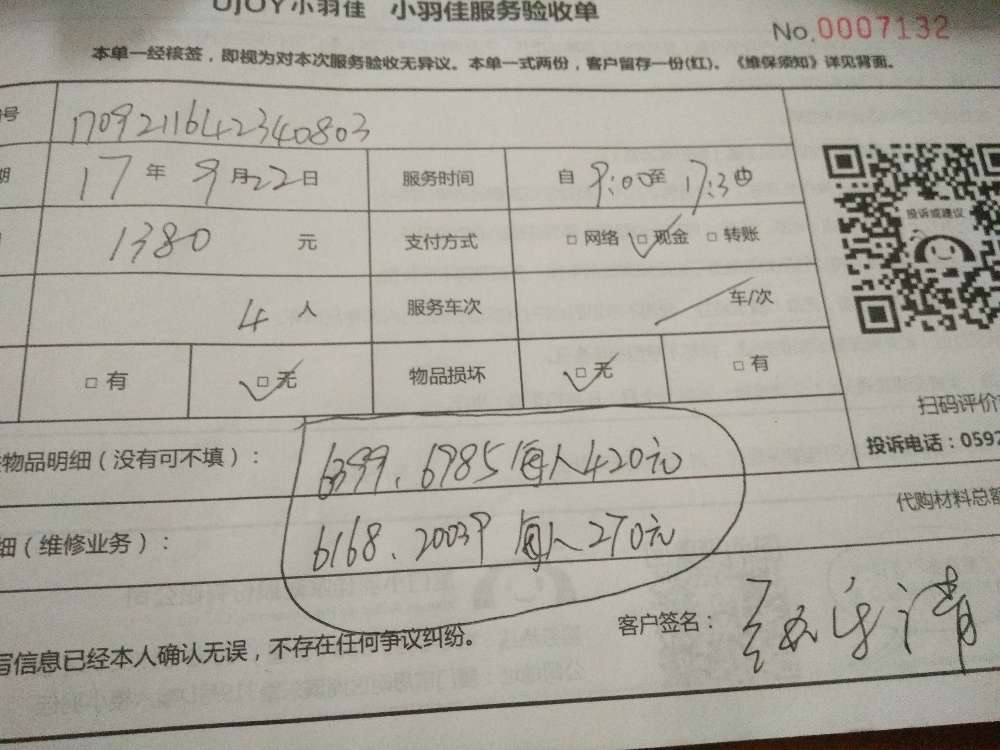 UJOY小羽佳 小羽佳服务验收单
No.0007132
本单一经核签，即视为对本次服务验收无异议。本单一式两份，客户留存一份(红)。《维保须知》详见背面。
号 1709211642340803
期 17年9月22日 服务时间 自9:00至17:30
1380元 支付方式 □网络 □现金 □转账
投诉或建议
4人 服务车次 车/次
□有 □无 物品损坏 □无 □有
扫码评价
投诉电话：0592
物品明细（没有可不填）：
6399、6985每人420元
代购材料总额
细（维修业务）：
6168、20039每人270元
客户签名：
写信息已经本人确认无误，不存在任何争议纠纷。